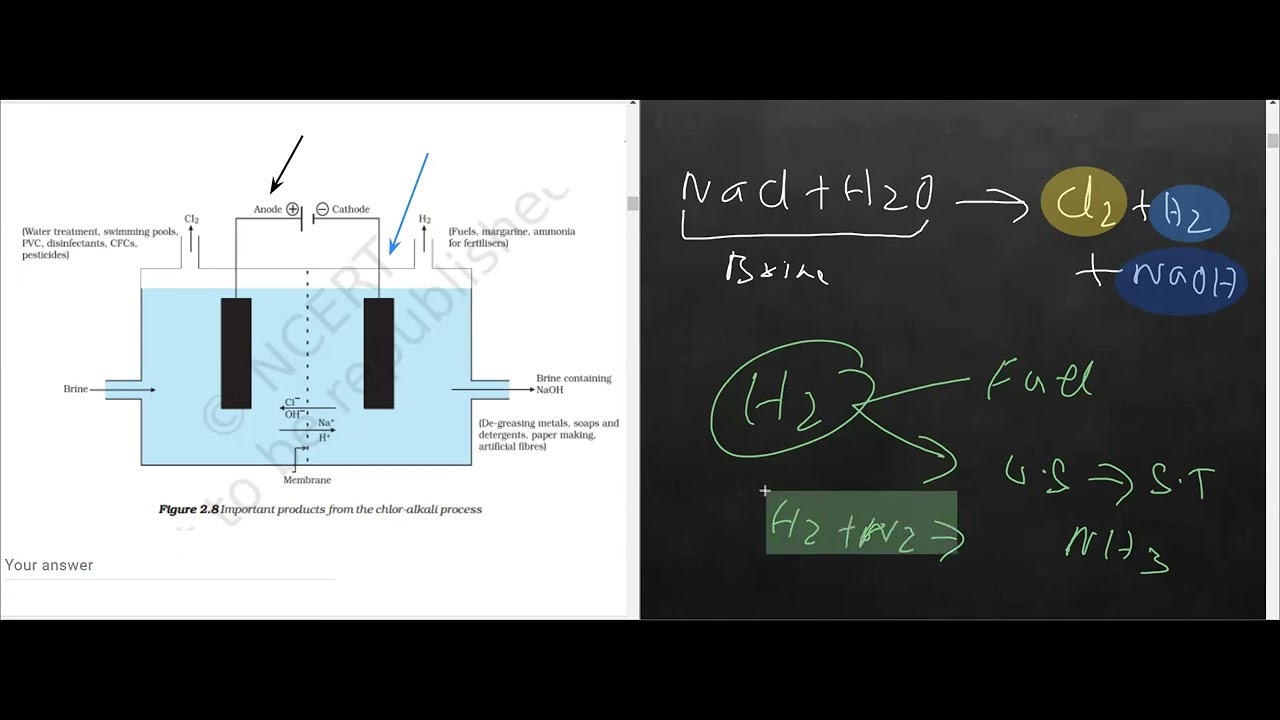 Anode ⊕ ⊖ Cathode
Cl2
H2
(Water treatment, swimming pools,
PVC, disinfectants, CFCs,
pesticides)
(Fuels, margarine, ammonia
for fertilisers)
© NCERT
to be republished
Brine
Brine containing
NaOH
Cl⁻
OH⁻
Na⁺
H⁺
(De-greasing metals, soaps and
detergents, paper making,
artificial fibres)
Membrane
Figure 2.8 Important products from the chlor-alkali process
Your answer
NaCl + H2O → Cl2 + H2
+ NaOH
Brine
H2
Fuel
U.S ⇒ S.T
H2 + N2 ⇒ NH3